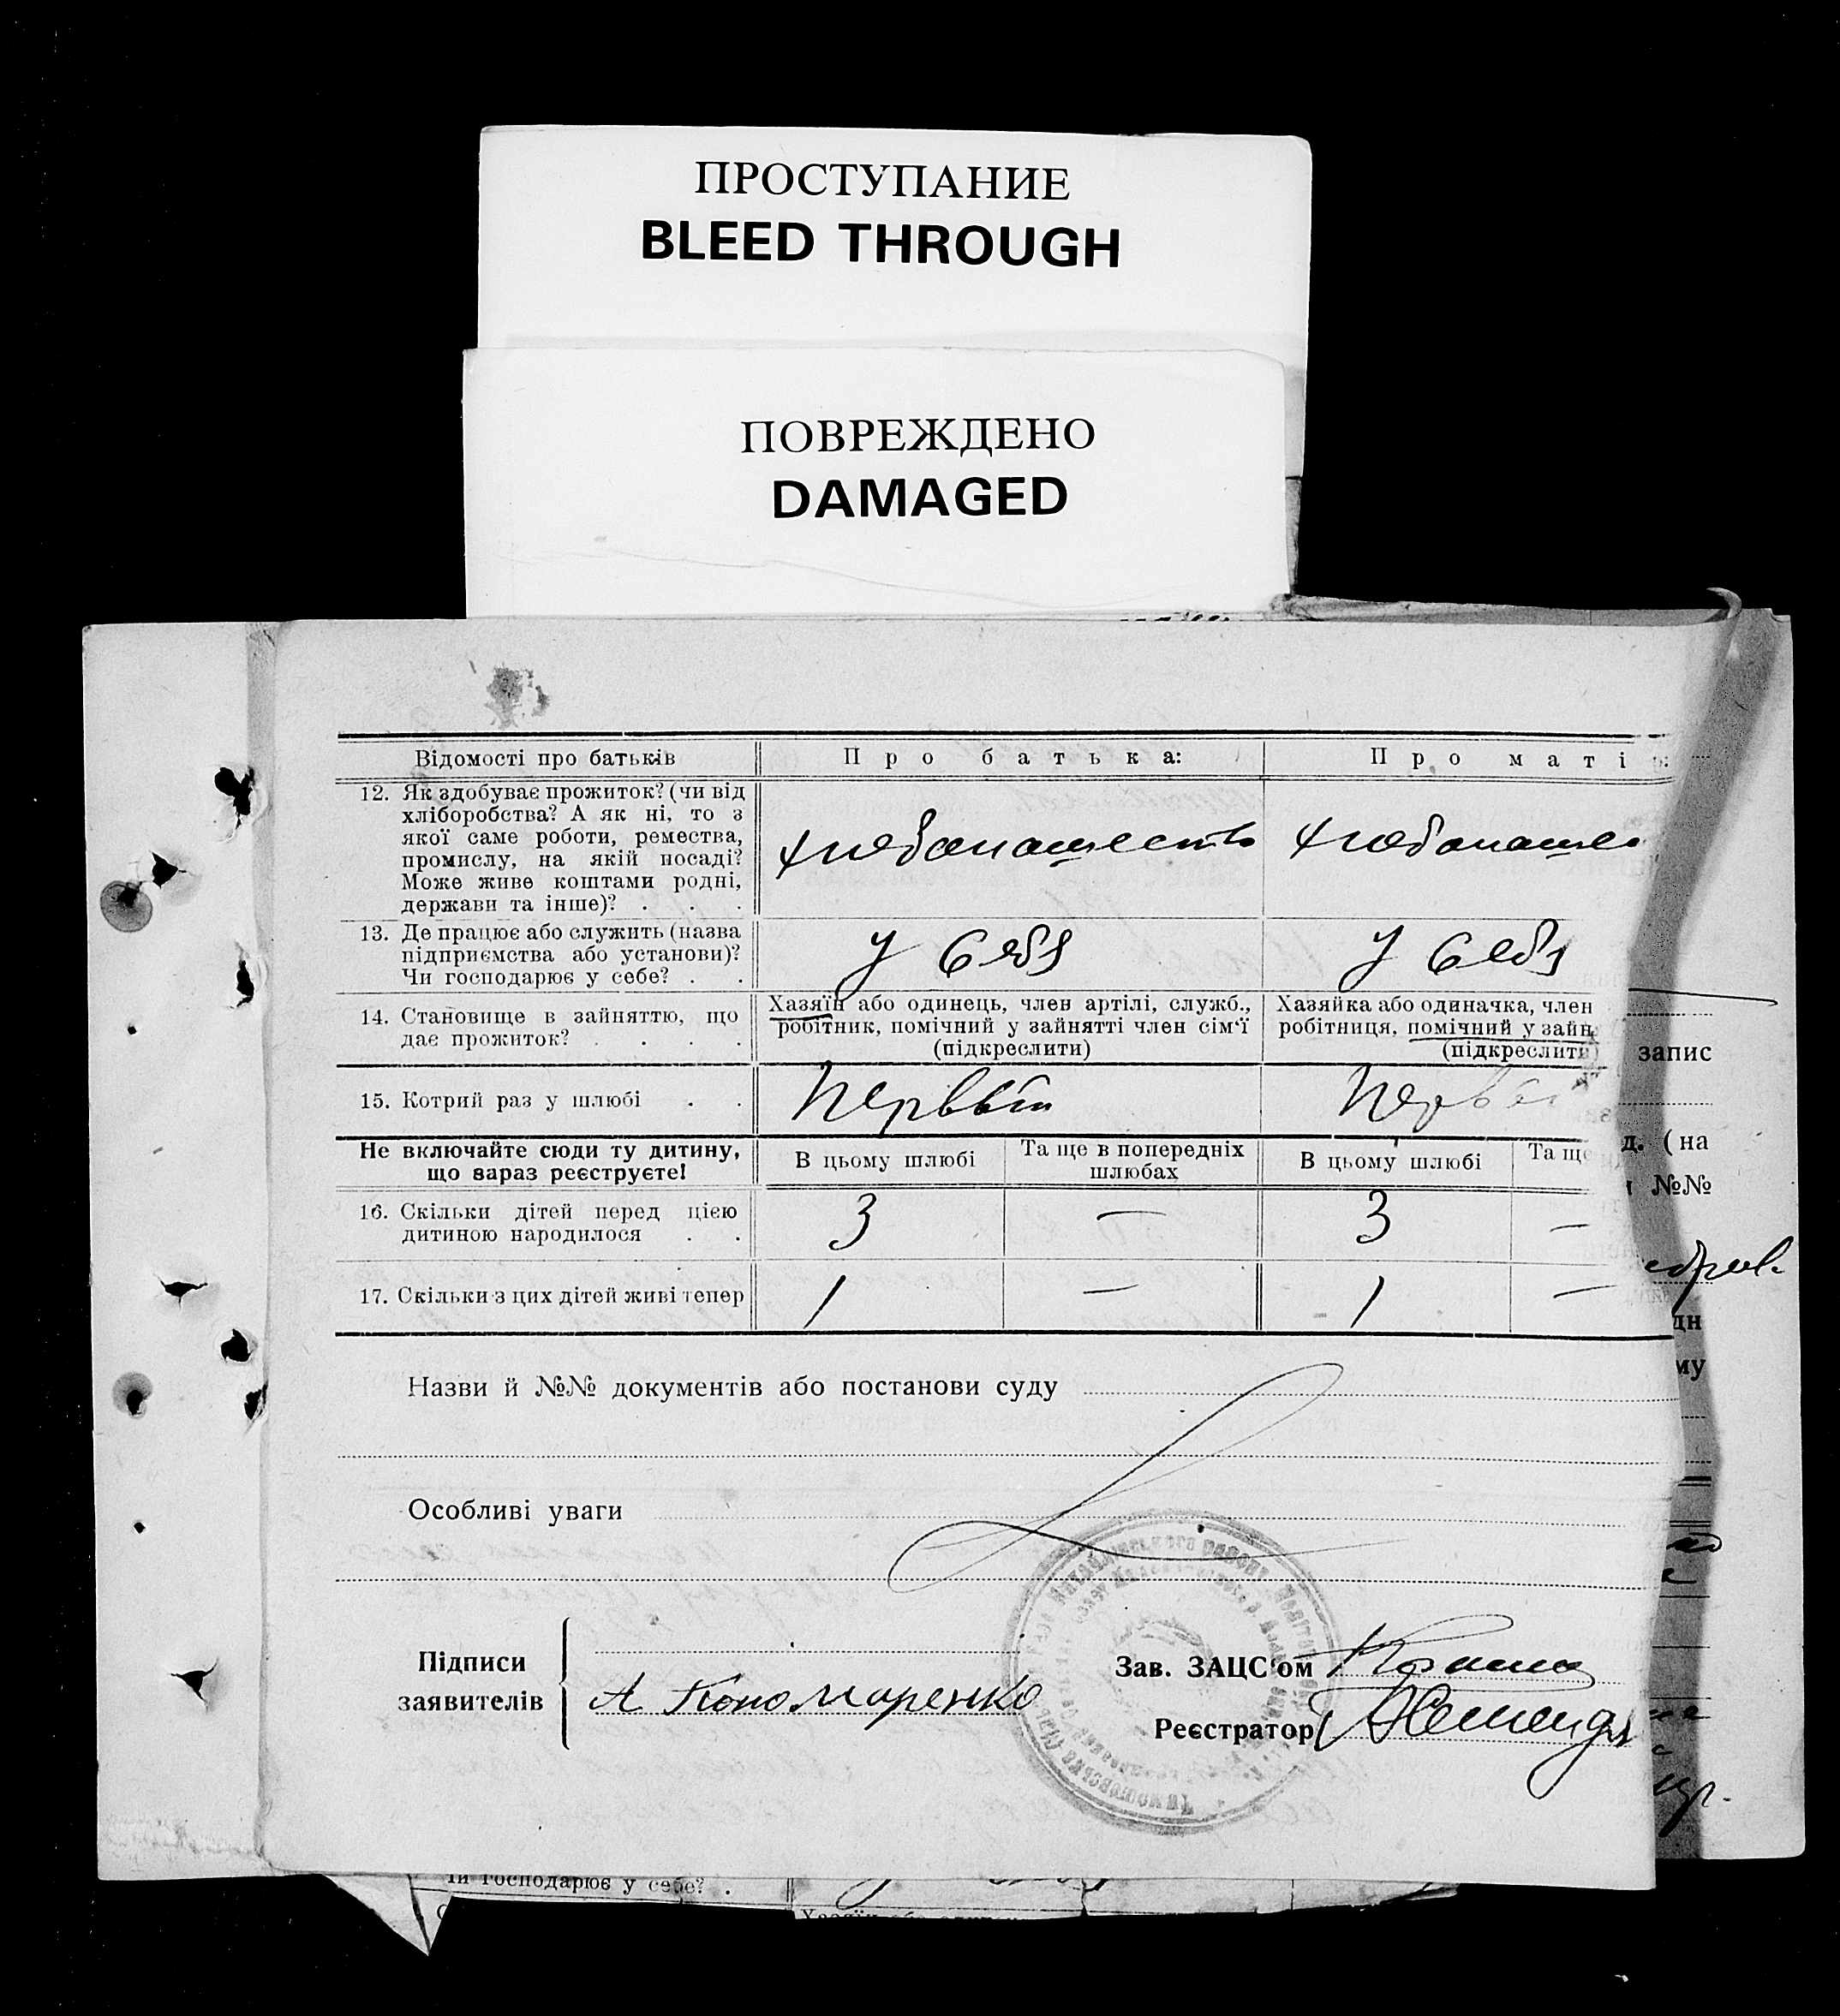 ПРОСТУПАНИЕ
BLEED THROUGH
ПОВРЕЖДЕНО
DAMAGED
Відомості про батьків
Про батька:
Про маті
12. Як здобуває прожиток? (чи від
хліборобства? А як ні, то з
якої саме роботи, ремества,
промислу, на якій посаді?
Може живе коштами родні,
держави та інше)? . . .
хлебопашество
хлебопаше
13. Де працює або служить (назва
підприємства або установи)?
Чи господарює у себе? . .
у себя
у себя
14. Становище в зайняттю, що
дає прожиток? . . . .
Хазяїн або одинець, член артілі, служб.,
робітник, помічний у зайнятті член сім'ї
(підкреслити)
Хазяйка або одиначка, член
робітниця, помічний у зайн
(підкреслити)
запис
15. Котрий раз у шлюбі . .
Первый
Первый
Не включайте сюди ту дитину,
що зараз реєструєте!
В цьому шлюбі
Та ще в попередніх
шлюбах
В цьому шлюбі
Та ще
д. (на
№№
16. Скільки дітей перед цією
дитиною народилося . .
3
—
3
—
17. Скільки з цих дітей живі тепер
1
—
1
—
дн
му
Назви й №№ документів або постанови суду
Особливі уваги
Підписи
заявителів
А Кономаренко
Зав. ЗАЦС'ом
Реєстратор
Чи господарює у себе? .